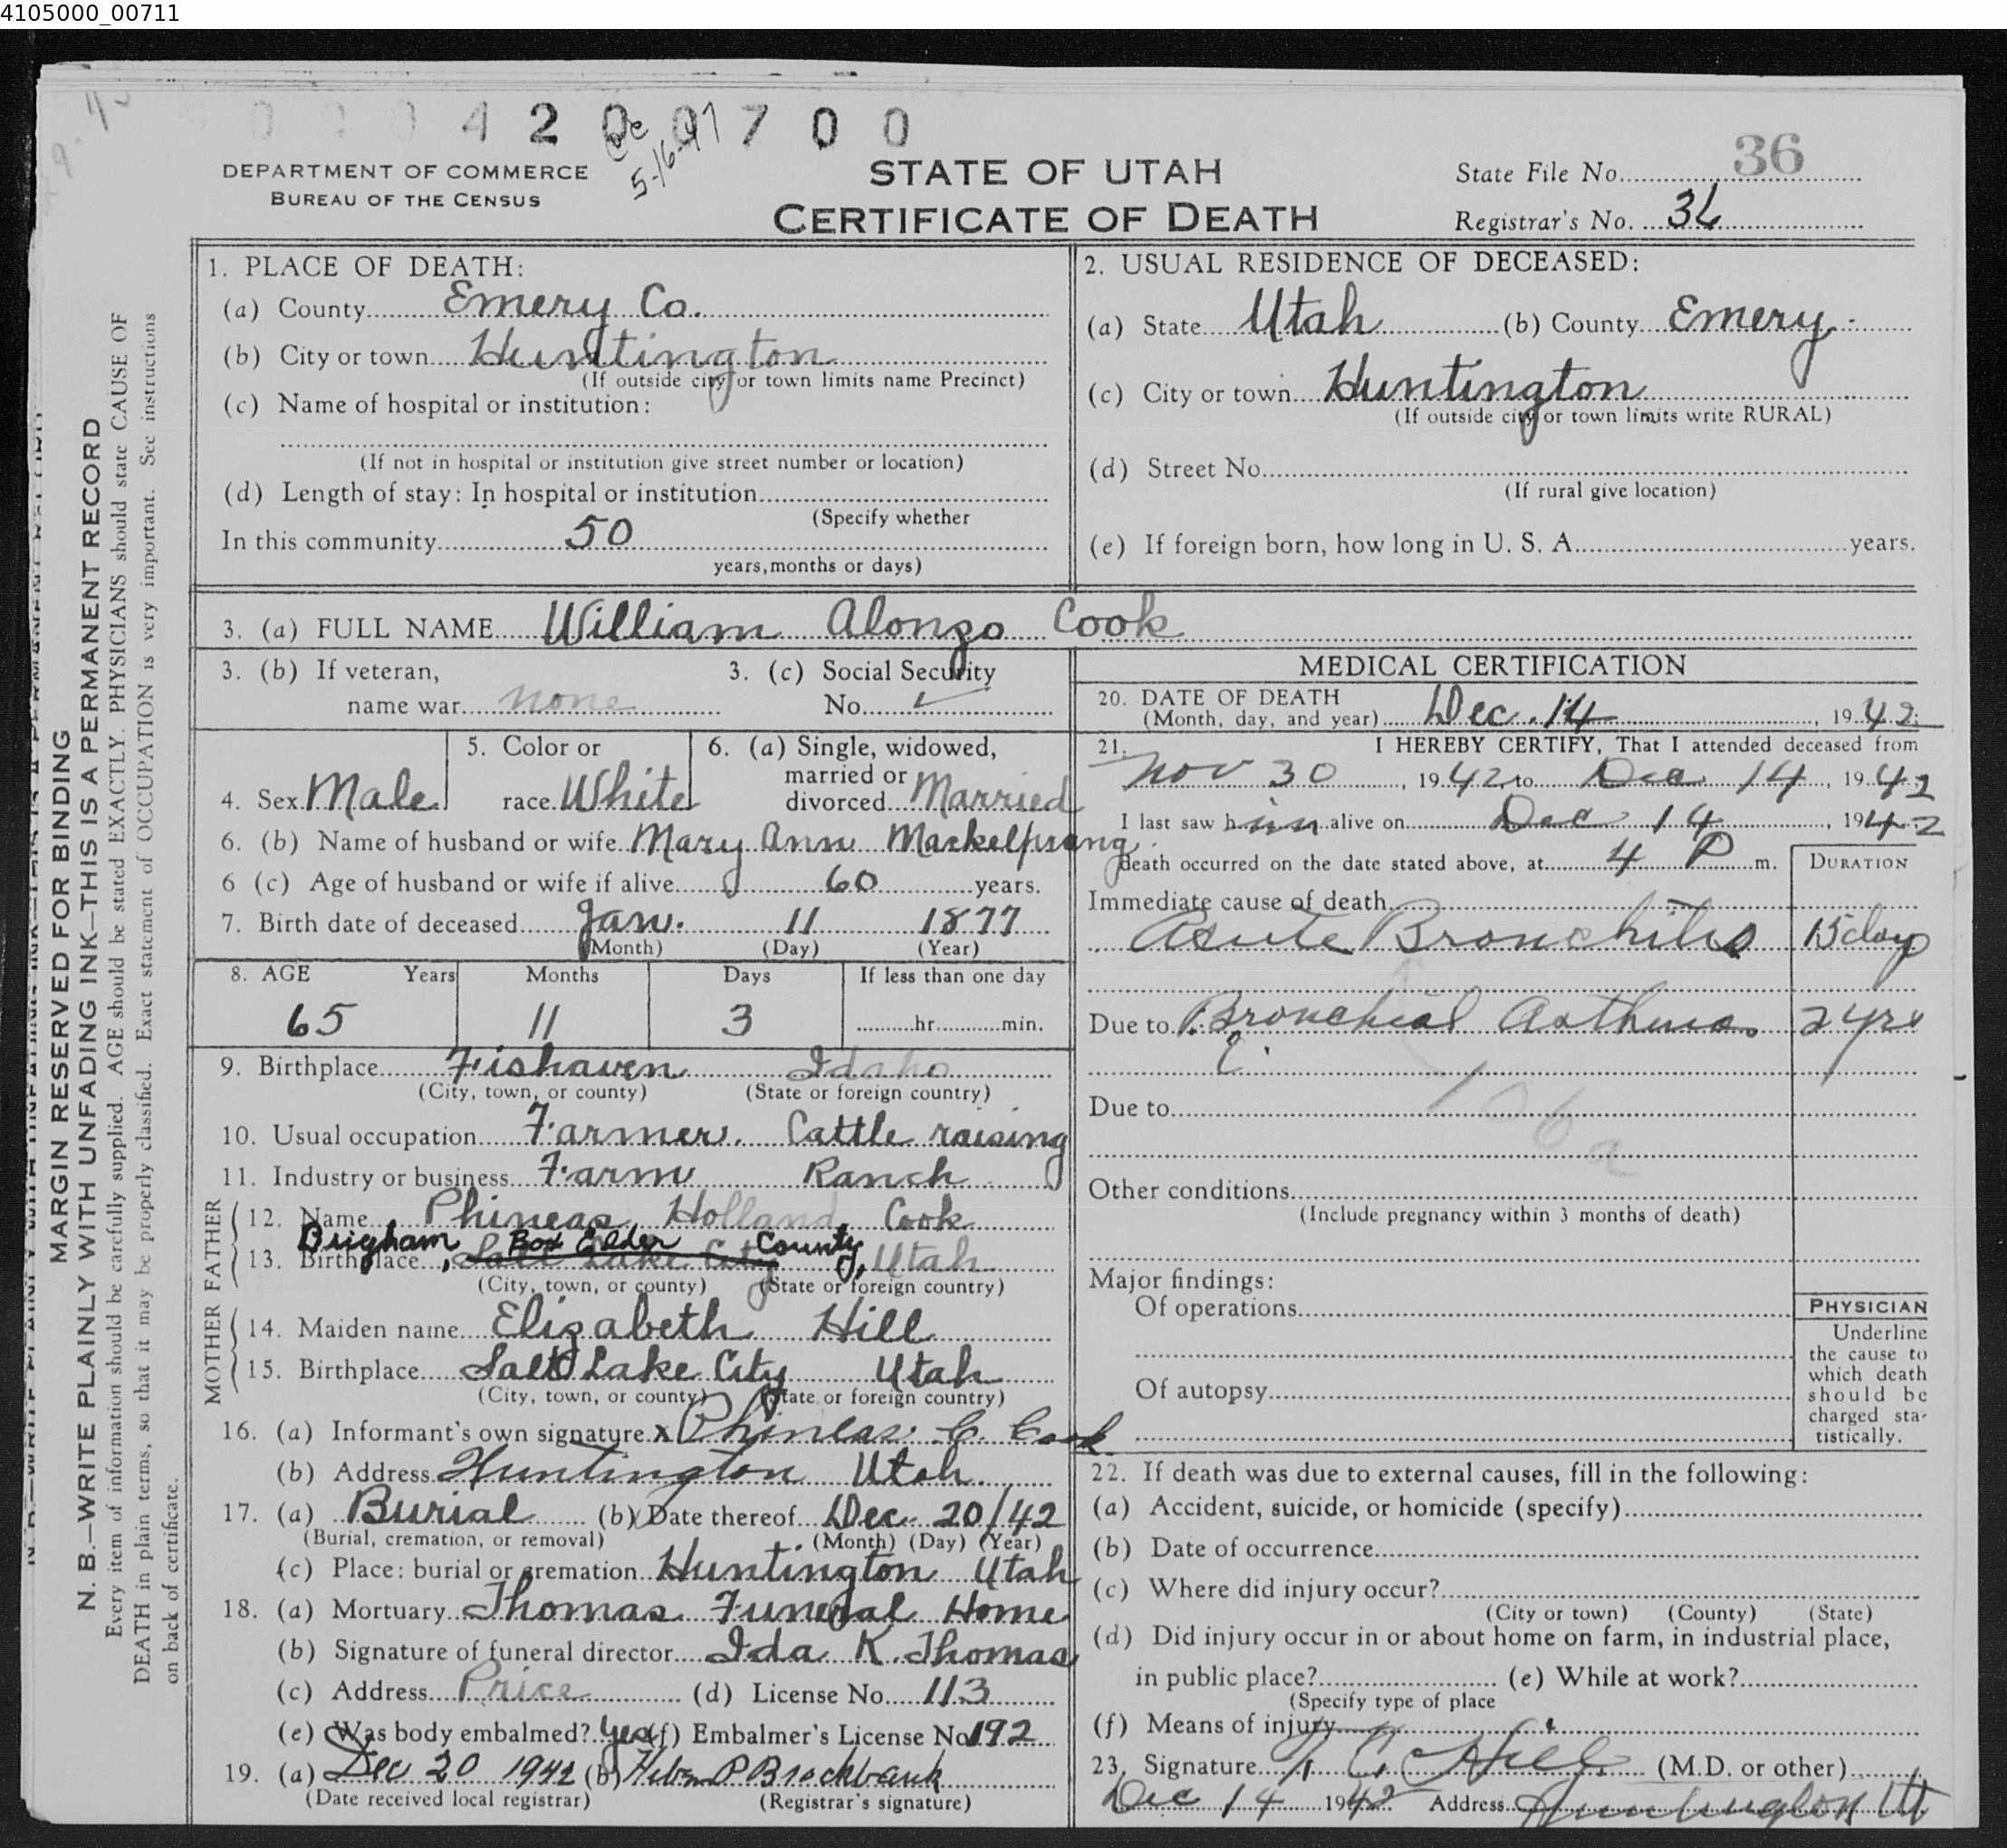 4105000_00711
0 0 0 4 2 0 0 7 0 0
5-16-47
DEPARTMENT OF COMMERCE
BUREAU OF THE CENSUS
STATE OF UTAH
CERTIFICATE OF DEATH
State File No. 36
Registrar's No. 36
MARGIN RESERVED FOR BINDING
N. B.—WRITE PLAINLY WITH UNFADING INK—THIS IS A PERMANENT RECORD
Every item of information should be carefully supplied. AGE should be stated EXACTLY. PHYSICIANS should state CAUSE OF
DEATH in plain terms, so that it may be properly classified. Exact statement of OCCUPATION is very important. See instructions
on back of certificate.
1. PLACE OF DEATH:
(a) County Emery Co.
(b) City or town Huntington
(If outside city or town limits name Precinct)
(c) Name of hospital or institution:
(If not in hospital or institution give street number or location)
(d) Length of stay: In hospital or institution
(Specify whether
In this community 50
years, months or days)
2. USUAL RESIDENCE OF DECEASED:
(a) State Utah (b) County Emery
(c) City or town Huntington
(If outside city or town limits write RURAL)
(d) Street No.
(If rural give location)
(e) If foreign born, how long in U. S. A. years.
3. (a) FULL NAME William Alonzo Cook
3. (b) If veteran, 3. (c) Social Security
name war none No. ✓
4. Sex Male
5. Color or
race White
6. (a) Single, widowed,
married or
divorced Married
6. (b) Name of husband or wife Mary Ann Markelprang
6 (c) Age of husband or wife if alive 60 years.
7. Birth date of deceased Jan. 11 1877
(Month) (Day) (Year)
8. AGE Years Months Days If less than one day
65 11 3 hr. min.
9. Birthplace Fishaven Idaho
(City, town, or county) (State or foreign country)
10. Usual occupation Farmer. Cattle raising
11. Industry or business Farm Ranch
FATHER
12. Name Phineas Holland Cook
Brigham, Box Elder County,
13. Birthplace Salt Lake City Utah
(City, town, or county) (State or foreign country)
MOTHER
14. Maiden name Elizabeth Hill
15. Birthplace Salt Lake City Utah
(City, town, or county) (State or foreign country)
16. (a) Informant's own signature X Phineas C. Cook
(b) Address Huntington Utah
17. (a) Burial (b) Date thereof Dec. 20/42
(Burial, cremation, or removal) (Month) (Day) (Year)
(c) Place: burial or cremation Huntington Utah
18. (a) Mortuary Thomas Funeral Home
(b) Signature of funeral director Ida K. Thomas
(c) Address Price (d) License No. 113
(e) Was body embalmed? yes (f) Embalmer's License No. 192
19. (a) Dec 20 1942 (b) Heber P Brockbank
(Date received local registrar) (Registrar's signature)
MEDICAL CERTIFICATION
20. DATE OF DEATH
(Month, day, and year) Dec. 14, 1942
21. I HEREBY CERTIFY, That I attended deceased from
Nov 30, 1942, to Dec 14, 1942
I last saw him alive on Dec 14, 1942
death occurred on the date stated above, at 4 P m.
DURATION
Immediate cause of death
Acute Bronchitis 15 day
Due to Bronchial Asthma 2 yrs
106a
Due to
Other conditions
(Include pregnancy within 3 months of death)
Major findings:
Of operations
Of autopsy
PHYSICIAN
Underline
the cause to
which death
should be
charged sta-
tistically.
22. If death was due to external causes, fill in the following:
(a) Accident, suicide, or homicide (specify)
(b) Date of occurrence
(c) Where did injury occur?
(City or town) (County) (State)
(d) Did injury occur in or about home on farm, in industrial place,
in public place? (e) While at work?
(Specify type of place
(f) Means of injury
23. Signature T. C. Hill (M.D. or other)
Dec 14 1942 Address Huntington Ut